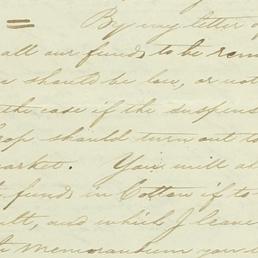 = By my letter of
all our funds to be rem
s should be low, or not
the case if the suspens
rop should turn out to
market. You will al
funds in Cotton if to
ult, and which I leave
Memorandum you